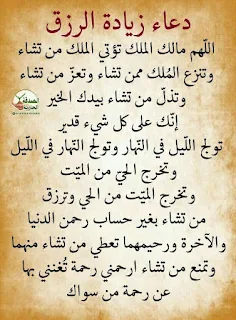 دعاء زيادة الرزق
اللّهم مالك الملك تؤتي الملك من تشاء
وتنزع المُلك ممن تشاء وتعزّ من تشاء
وتذلّ من تشاء بيدك الخير
إنّك على كل شيء قدير
تولج اللّيل في النّهار وتولج النّهار في اللّيل
وتخرج الحيّ من الميّت
وتخرج الميّت من الحي وترزق
من تشاء بغير حساب رحمن الدنيا
والآخرة ورحيمهما تعطي من تشاء منهما
وتمنع من تشاء ارحمني رحمة تُغنني بها
عن رحمة من سواك